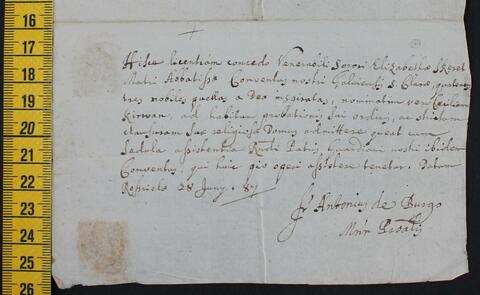 16
17
18
19
20
21
22
23
24
25
26
+
Hisce licentiam concedo Venerabili Sorori Elizabethæ Skeret
Matri Abbatissæ Conventus nostri Galviensis S. Claræ, quatenus
tres nobiles puellas a Deo inspiratas, nominatim vero Ceciliam
Kirwan, ad habitum probationis sui ordinis, ac strictam
clausuram suæ religiosæ Domus admittere queat cum
sedula assistentia Rndi Patris Guardiani nostri ibidem
Conventus, qui huic pio operi assistere tenetur. Datum
28 Juny. 87
Fr Antonius de Burgo
Mnr Proalis